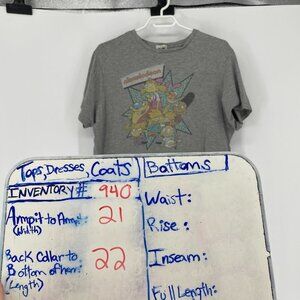 nickelodeon
Tops, Dresses, Coats
Bottoms
INVENTORY # 940
Armpit to Armpit 21
(Width)
Back Collar to
Bottom of hem: 22
(Length)
Waist:
Rise:
Inseam:
Full Length: